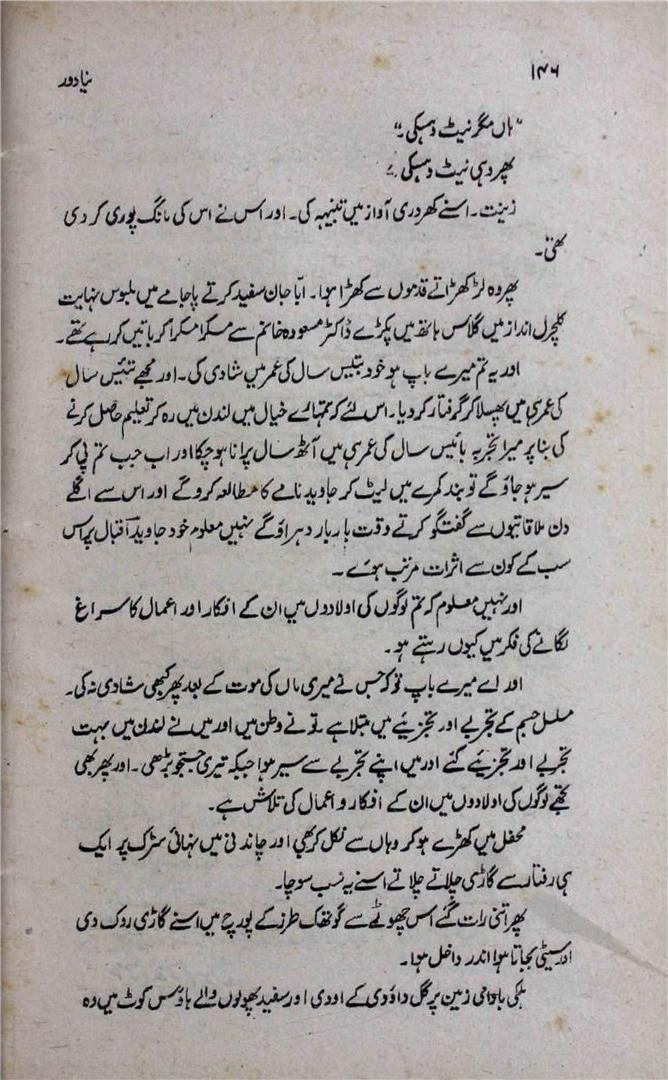 ۱۴۶
نیا دور
"ہاں مگر نیٹ وہسکی۔"
پھر وہی نیٹ وہسکی۔
زینت۔ اسنے کھردری آواز میں تنبیہہ کی۔ اور اس نے اس کی مانگ پوری کر دی
تھی۔
پھر وہ لڑکھڑاتے قدموں سے کھڑا ہوا۔ ابا جان سفید کرتے پاجامے میں ملبوس نہایت
کلچرل انداز میں گلاس ہاتھ میں پکڑے ڈاکٹر مسعودہ خانم سے مسکرا مسکرا کر باتیں کر رہے تھے۔
اور یہ تم میرے باپ ہو خود بتیس سال کی عمر میں شادی کی۔ اور مجھے تئیس سال
کی عمر ہی میں پھسلا کر گرفتار کر دیا۔ اس لئے کہ تمہارے خیال میں لندن میں رہ کر تعلیم حاصل کرنے
کی بنا پر میرا تجربہ بائیس سال کی عمر ہی میں آٹھ سال پرانا ہو چکا اور اب جب تم پی کر
سیر ہو جاؤ گے تو بند کمرے میں لیٹ کر جاوید نامے کا مطالعہ کرو گے اور اس سے اگلے
دن ملاقاتیوں سے گفتگو کرتے وقت بار بار دہراؤ گے نہیں معلوم خود جاوید اقبال پر اس
سب کے کون سے اثرات مرتب ہوئے۔
اور نہیں معلوم کہ تم لوگوں کی اولادوں میں ان کے افکار اور اعمال کا سراغ
لگانے کی فکر میں کیوں رہتے ہو۔
اور اے میرے باپ تو کہ جس نے میری ماں کی موت کے بعد پھر کبھی شادی نہ کی۔
مسلسل جسم کے تجربے اور تجزیئے میں مبتلا ہے۔ تو نے وطن میں اور میں نے لندن میں بہت
تجربے اور تجزیئے کئے اور میں اپنے تجربے سے سیر ہوا جبکہ تیری جستجو بڑھی۔ اور پھر بھی
تجھے لوگوں کی اولادوں میں ان کے افکار و اعمال کی تلاش ہے۔
محفل میں کھڑے ہو کر وہاں سے نکل کر بھی اور چاندنی میں نہائی سڑک پر ایک
ہی رفتار سے گاڑی چلاتے چلاتے اسنے یہ سب سوچا۔
پھر اتنی رات گئے اس چھوٹے سے گوتھک طرز کے پورچ میں اسنے گاڑی روک دی
اور سیٹی بجاتا ہوا اندر داخل ہوا۔
ہلکی بادامی زمین پر گل داؤدی کے اودی اور سفید پھولوں والے ہاؤس کوٹ میں وہ